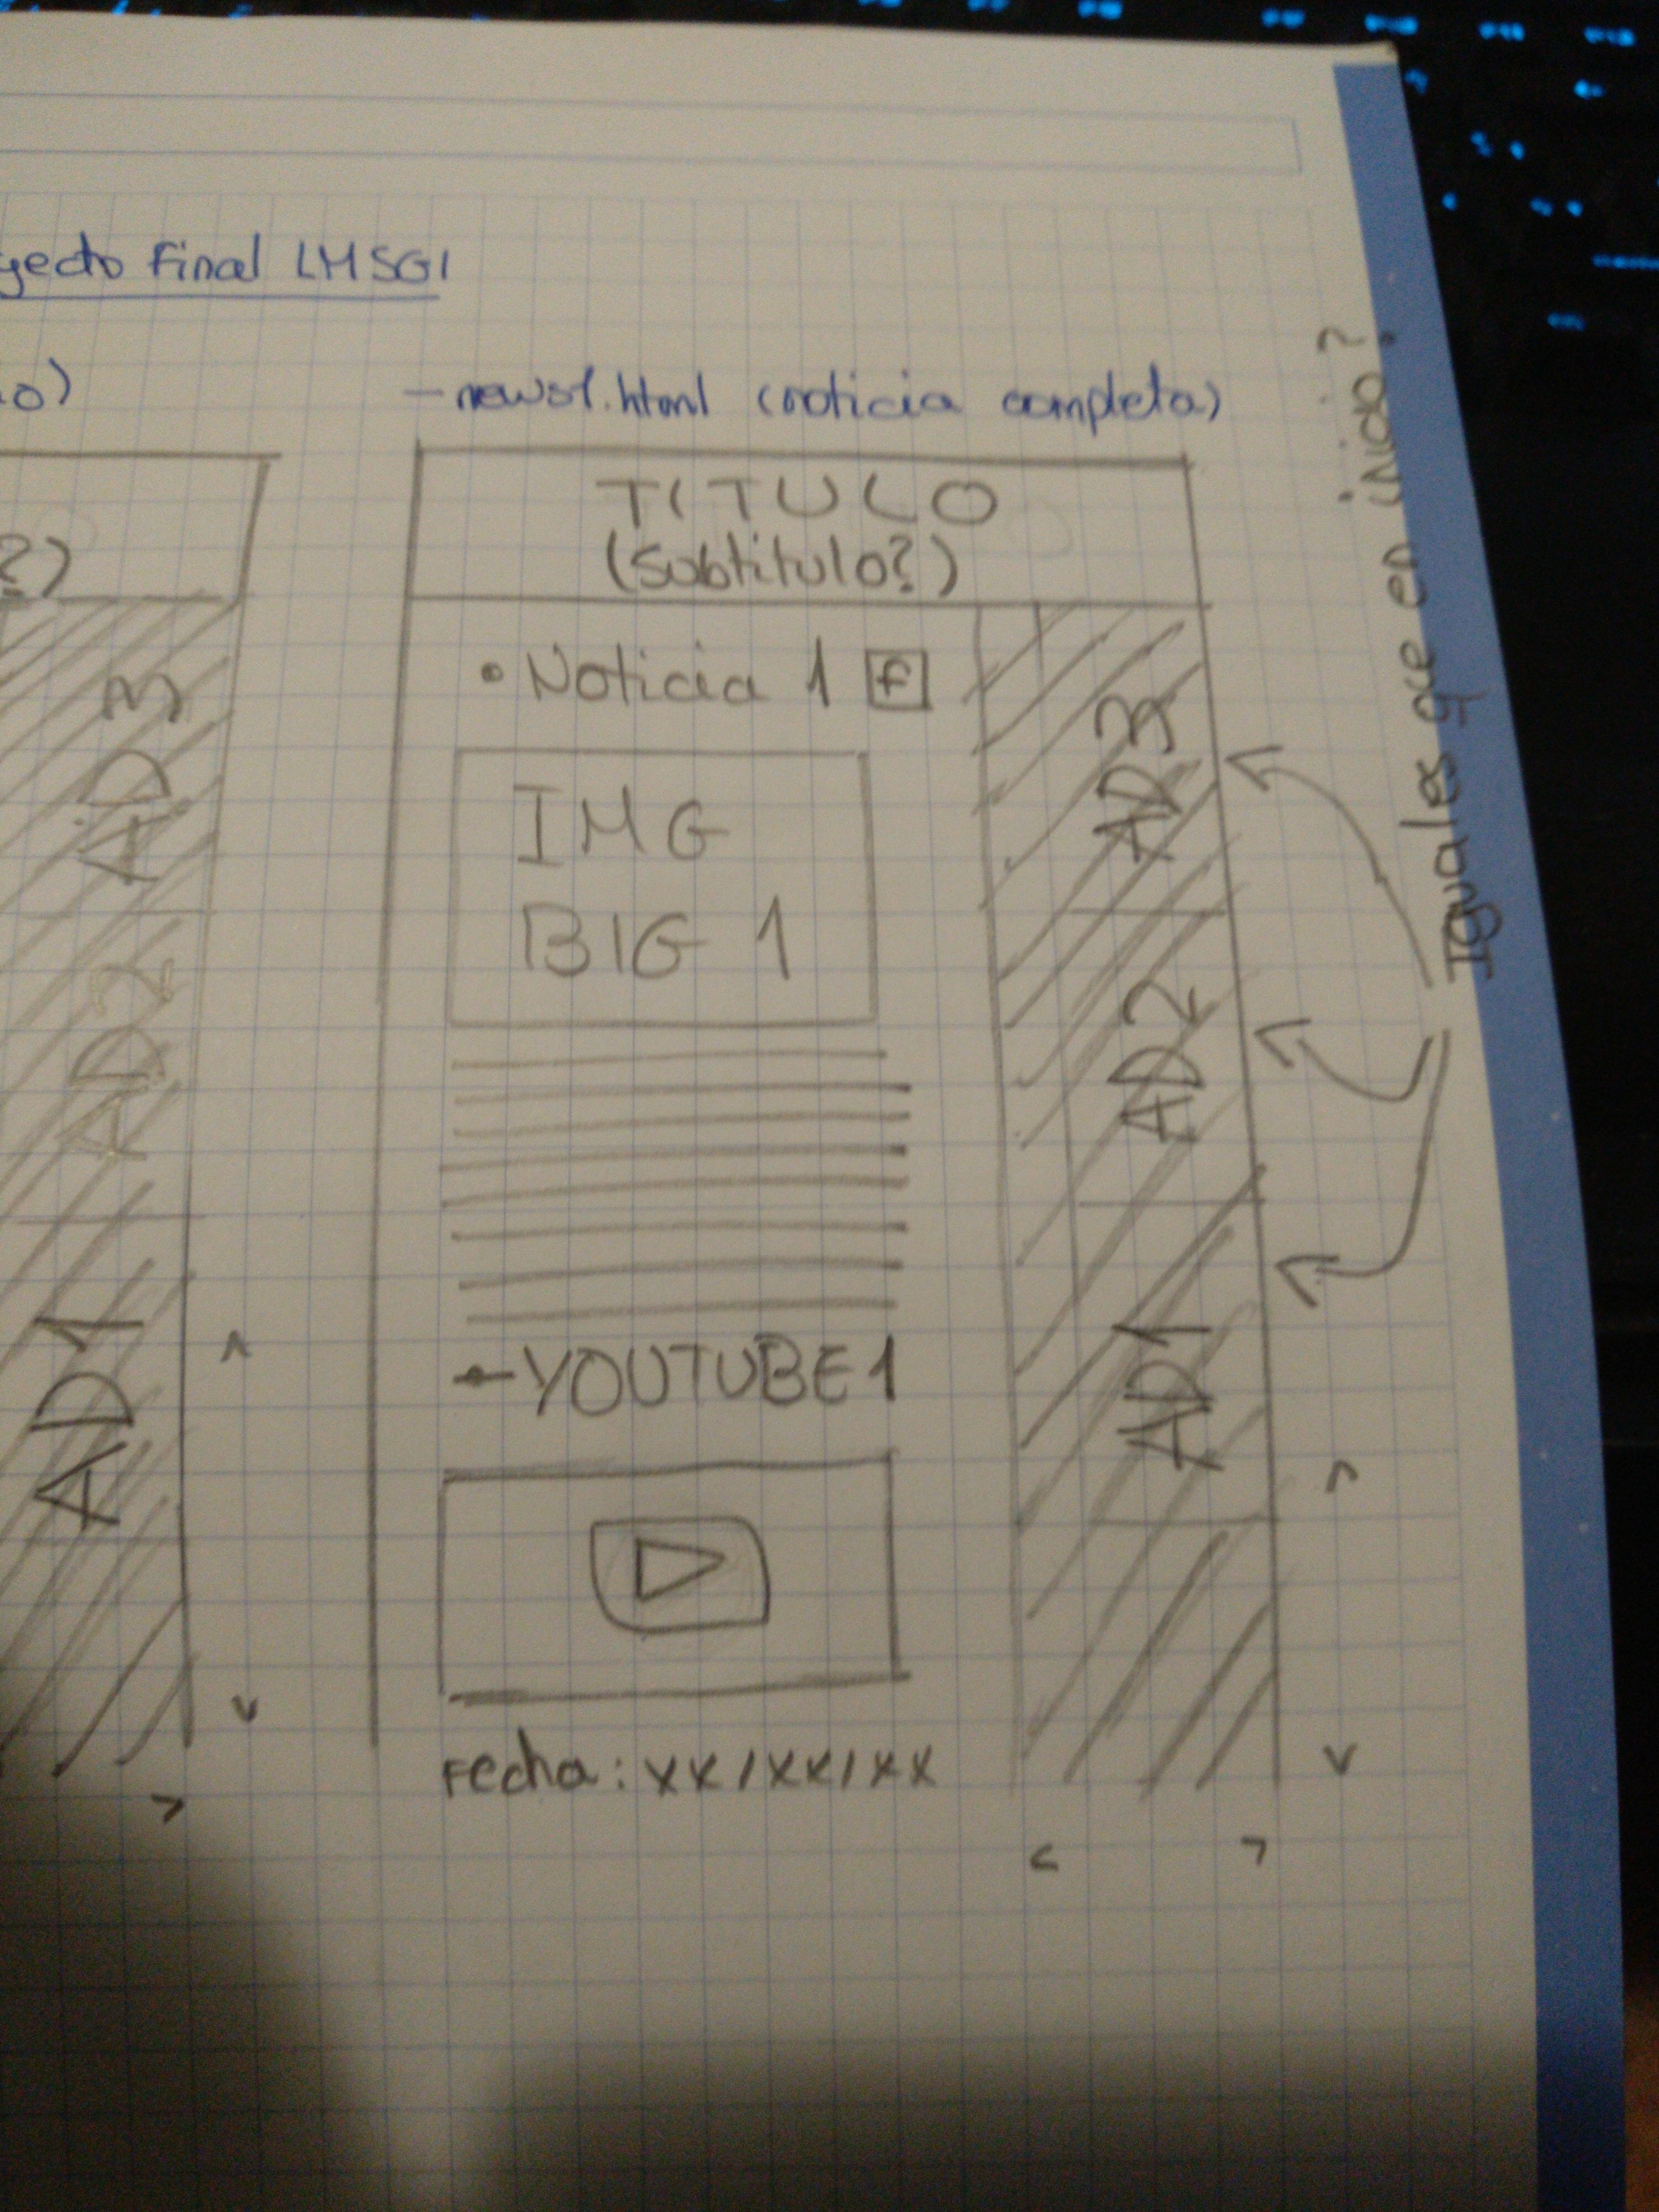 yecto Final LMSGI
o)
- news1.html (noticia completa)
?)
AD3
AD2
AD1
TITULO
(Subtitulo?)
• Noticia 1 F
IMG
BIG 1
YOUTUBE1
Fecha: XX/XX/XX
AD3
AD2
AD1
Iguales que en inicio?